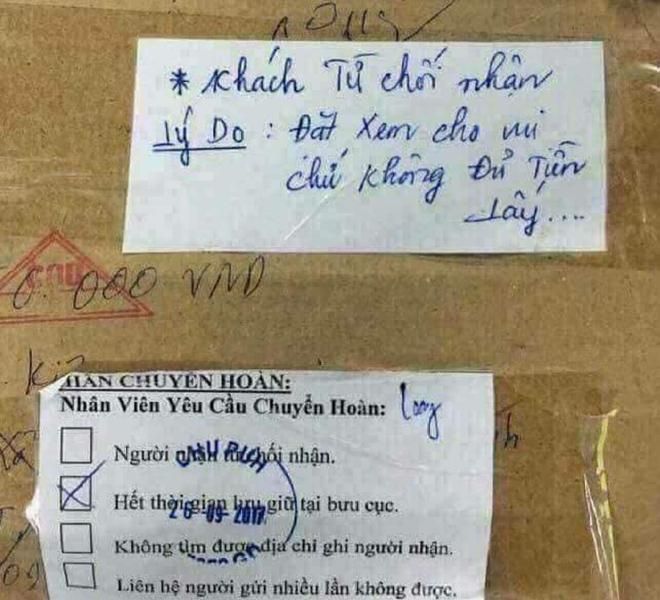 * Khách Từ chối nhận
Lý Do: Đặt xem cho vui
chứ không Đủ Tiền
Lấy....
000 VND
CHUYỂN HOÀN:
Nhân Viên Yêu Cầu Chuyển Hoàn: Long
Người nhận từ chối nhận.
Hết thời gian lưu giữ tại bưu cục.
26-09-2017
Không tìm được địa chỉ ghi người nhận.
Liên hệ người gửi nhiều lần không được.